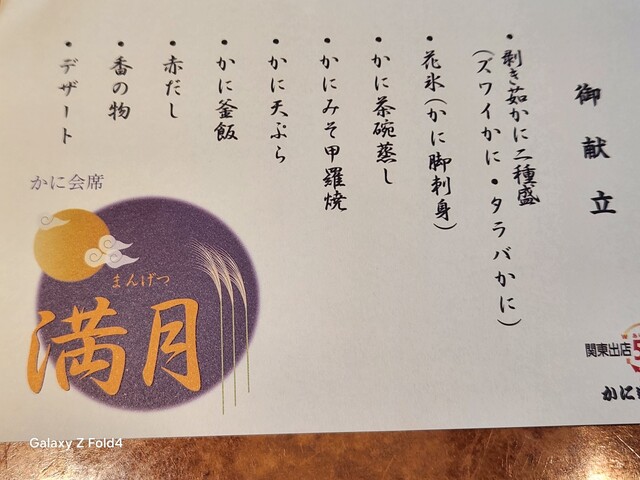 御献立
・剥き茹かに二種盛
(ズワイかに・タラバかに)
・花氷(かに脚刺身)
・かに茶碗蒸し
・かにみそ甲羅焼
・かに天ぷら
・かに釜飯
・赤だし
・香の物
・デザート
かに会席
まんげつ
満月
関東出店
かに
Galaxy Z Fold4